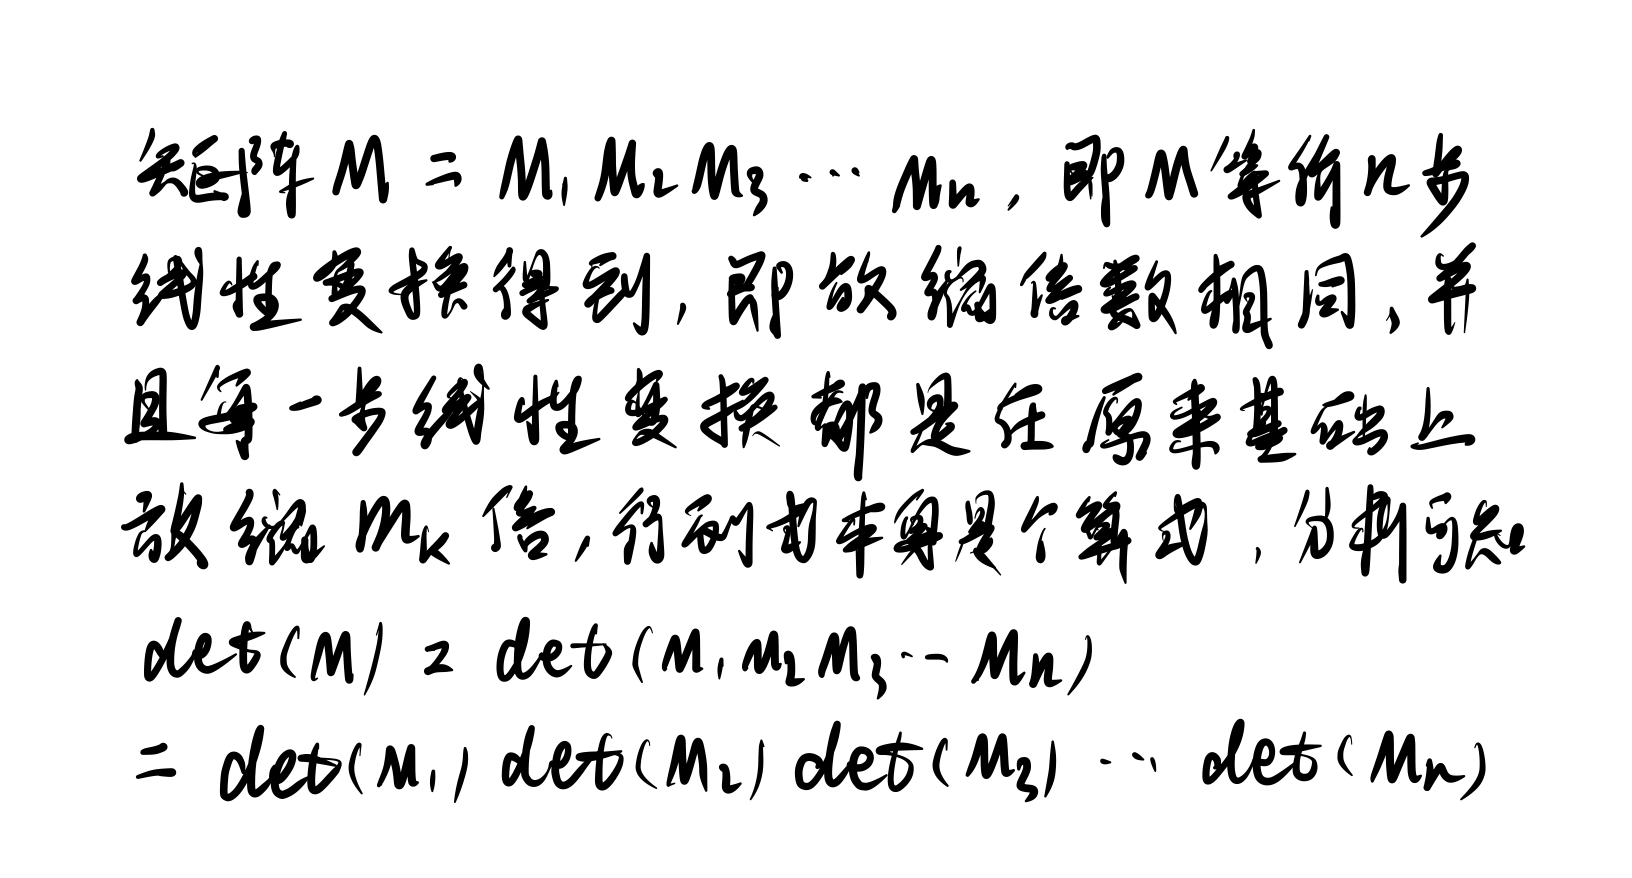 矩阵 M = M₁M₂M₃⋯Mₙ, 即M等价n步
线性变换得到, 即放缩倍数相同, 并
且每一步线性变换都是在原来基础上
放缩 mₖ 倍, 行列式本身是个算式, 分析可知
det(M) = det(M₁M₂M₃⋯Mₙ)
= det(M₁) det(M₂) det(M₃) ⋯ det(Mₙ)